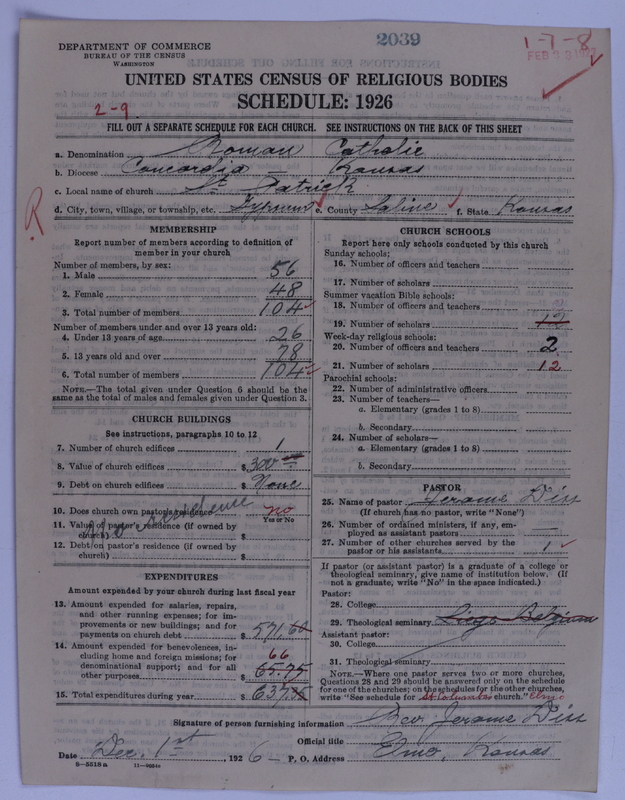 2039
1-7-8
FEB 28 1927
DEPARTMENT OF COMMERCE
BUREAU OF THE CENSUS
WASHINGTON
UNITED STATES CENSUS OF RELIGIOUS BODIES
SCHEDULE: 1926
2-9
FILL OUT A SEPARATE SCHEDULE FOR EACH CHURCH. SEE INSTRUCTIONS ON THE BACK OF THIS SHEET
a. Denomination Roman Catholic
b. Diocese Concordia – Kansas
c. Local name of church St Patrick
d. City, town, village, or township, etc. Gypsum e. County Saline f. State Kansas
R
MEMBERSHIP
Report number of members according to definition of
member in your church
Number of members, by sex:
1. Male 56
2. Female 48
3. Total number of members 104
Number of members under and over 13 years old:
4. Under 13 years of age 26
5. 13 years old and over 78
6. Total number of members 104
NOTE.—The total given under Question 6 should be the
same as the total of males and females given under Question 3.
CHURCH BUILDINGS
See instructions, paragraphs 10 to 12
7. Number of church edifices 1
8. Value of church edifices $ 300
9. Debt on church edifices $ None
10. Does church own pastor's residence? no
Yes or No
11. Value of pastor's residence (if owned by
church) $
No residence
12. Debt on pastor's residence (if owned by
church) $
EXPENDITURES
Amount expended by your church during last fiscal year
13. Amount expended for salaries, repairs,
and other running expenses; for im-
provements or new buildings; and for
payments on church debt $ 571.60
14. Amount expended for benevolences, in-
cluding home and foreign missions; for
denominational support; and for all
other purposes $ 65.75
66
15. Total expenditures during year $ 637.35
CHURCH SCHOOLS
Report here only schools conducted by this church
Sunday schools:
16. Number of officers and teachers
17. Number of scholars
Summer vacation Bible schools:
18. Number of officers and teachers
19. Number of scholars 12
Week-day religious schools:
20. Number of officers and teachers 2
21. Number of scholars 12
Parochial schools:
22. Number of administrative officers
23. Number of teachers—
a. Elementary (grades 1 to 8)
b. Secondary
24. Number of scholars—
a. Elementary (grades 1 to 8)
b. Secondary
PASTOR
25. Name of pastor Jerome Diss
(If church has no pastor, write "None")
26. Number of ordained ministers, if any, em-
ployed as assistant pastors —
27. Number of other churches served by the
pastor or his assistants 1
If pastor (or assistant pastor) is a graduate of a college or
theological seminary, give name of institution below. (If
not a graduate, write "No" in the space indicated.)
Pastor:
28. College
29. Theological seminary Liege Belgium
Assistant pastor:
30. College
31. Theological seminary
NOTE.—Where one pastor serves two or more churches,
Questions 28 and 29 should be answered only on the schedule
for one of the churches; on the schedules for the other churches,
write "See schedule for St Columba church." Elmo
Signature of person furnishing information Rev. Jerome Diss
Official title
Date Dec. 1st, 1926 – P. O. Address Elmo, Kansas
8-5518a 11-9684